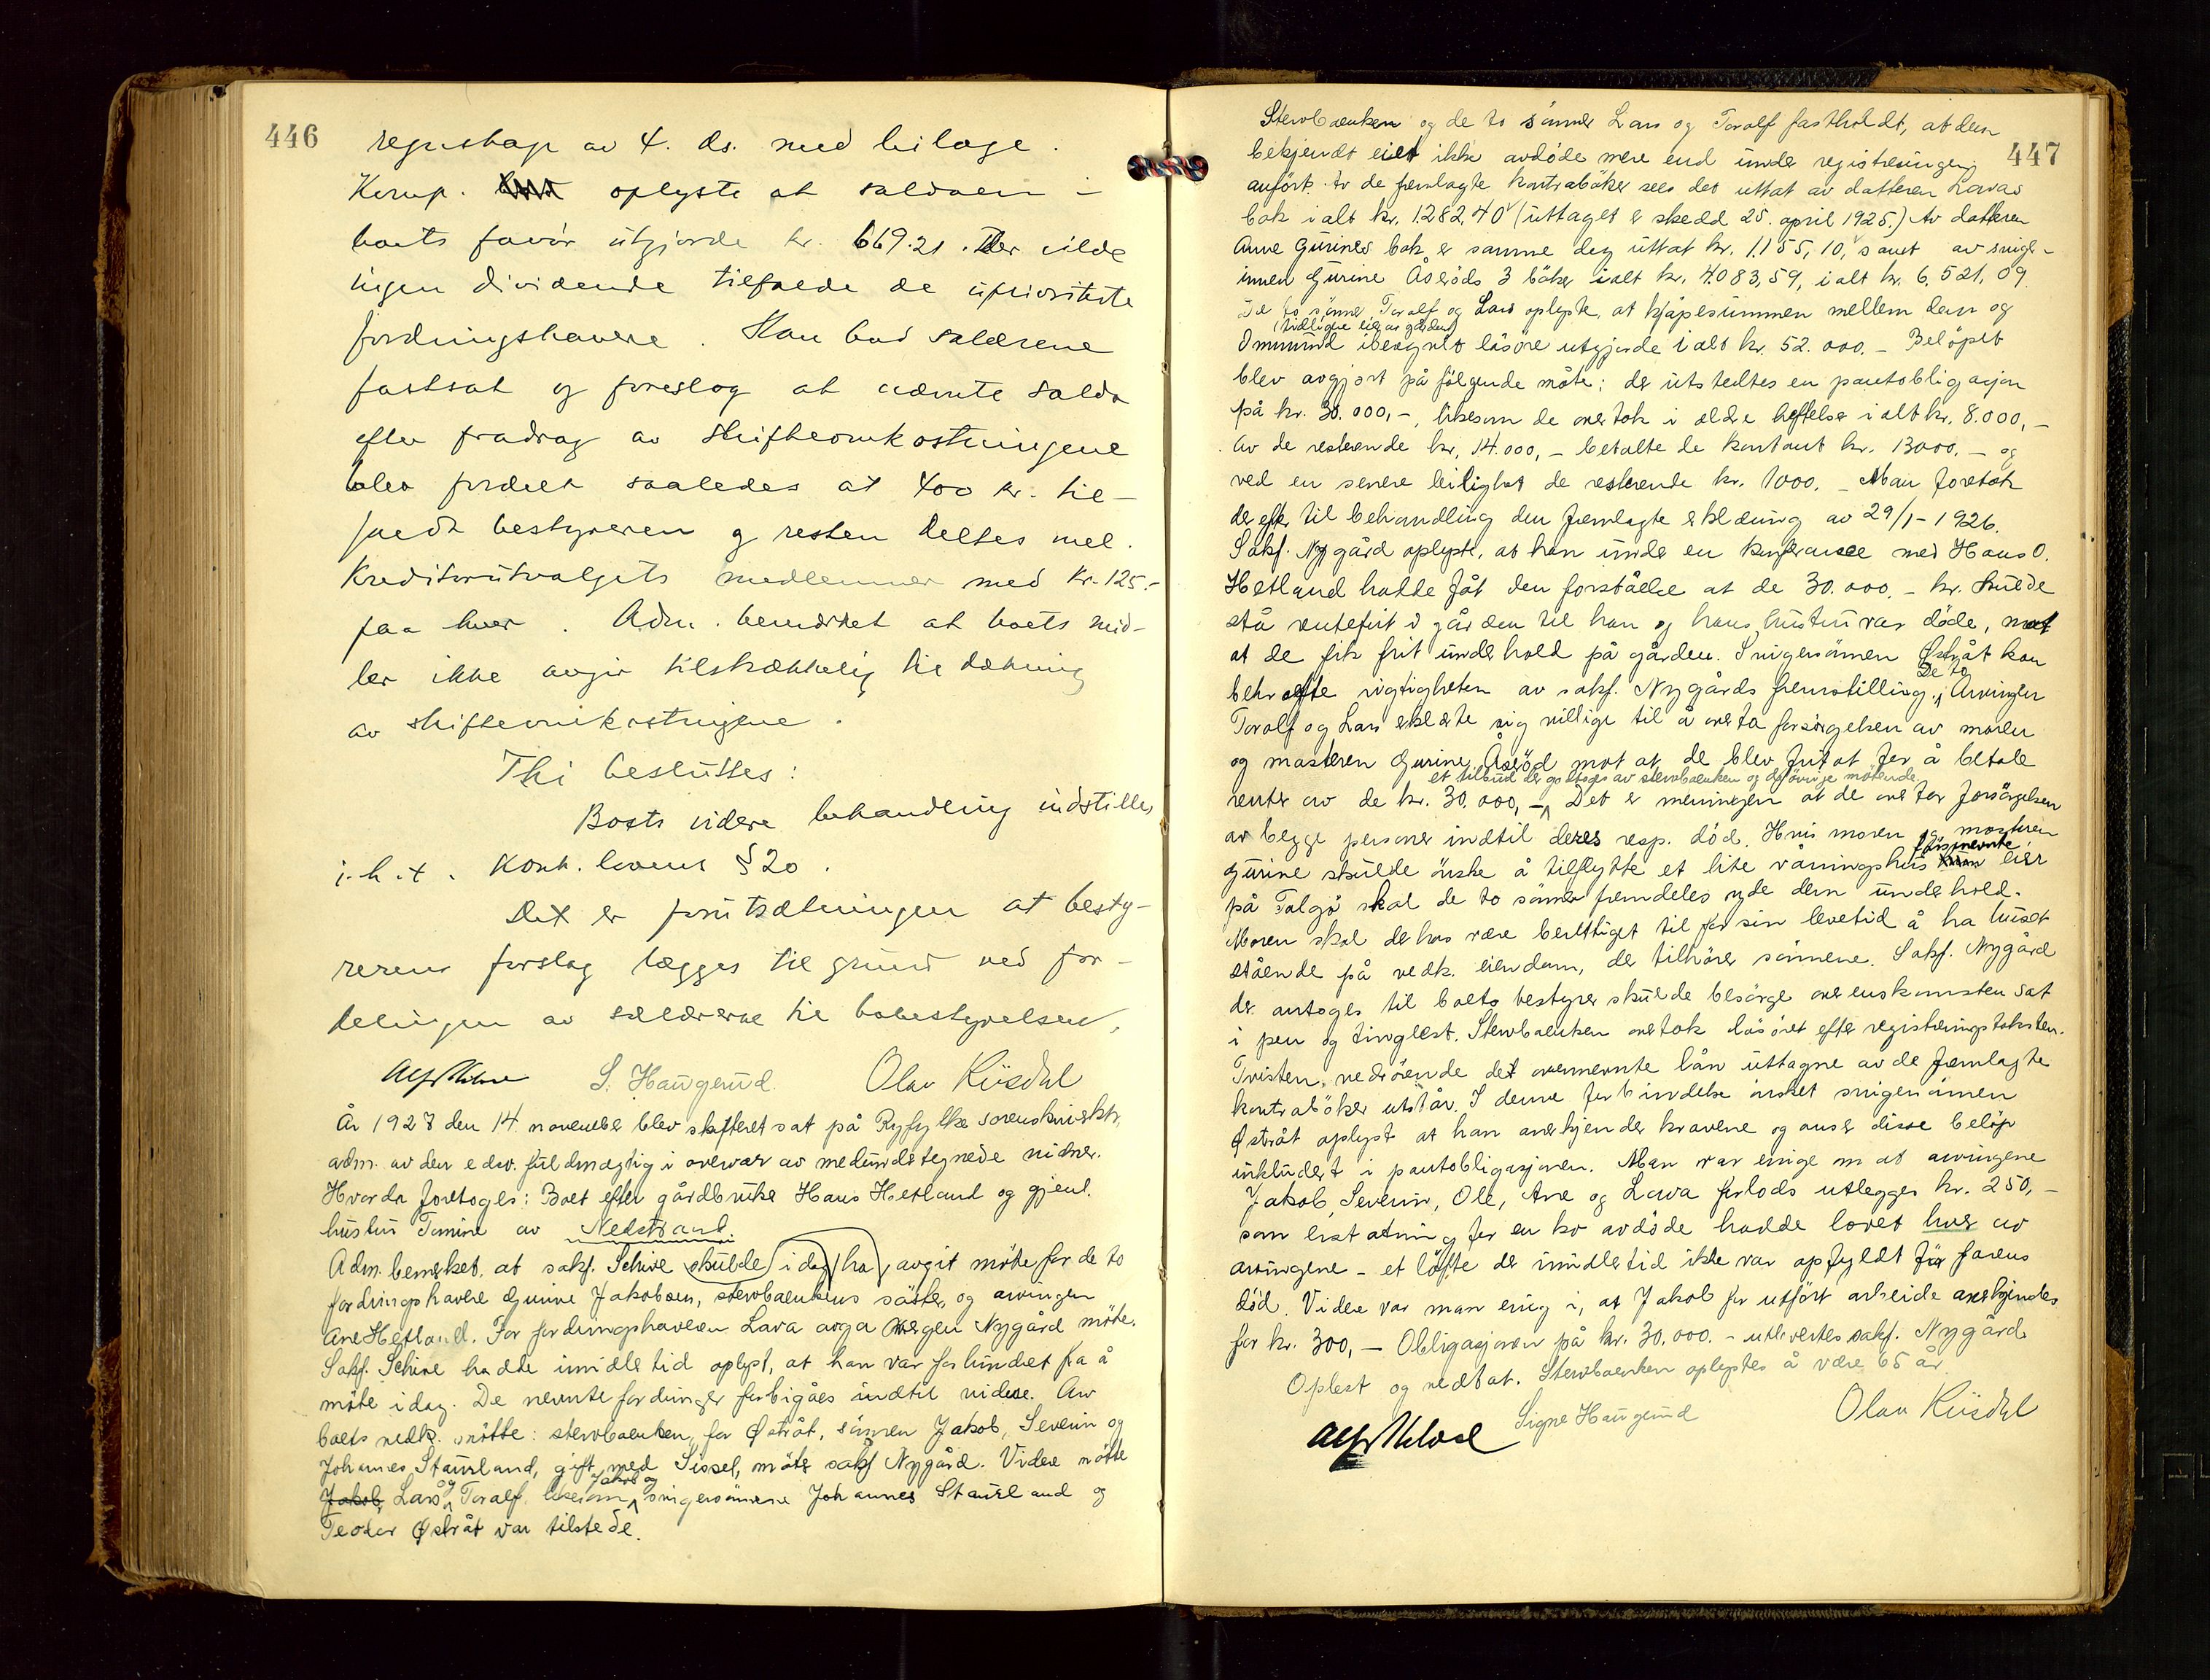 446
regnskap av 4. ds. med bilage.
Komp. oplyste at saldoen i
boets favör utgjorde kr. 669.21. Der vilde
ingen dividende tilfalde de uprioriterte
fordringshavere. Han bad salærene
fastsat og foreslog at nævnte saldo
efter fradrag av skifteomkostningene
blev fordelt saaledes at 400 kr. til-
faldt bestyreren og resten deltes mel.
Kreditorutvalgets medlemmer med kr. 125.-
paa hver. Adm. bemerket at boets mid-
ler ikke avgir tilstrækkelig til dækning
av skifteomkostningene.
Thi besluttes:
Boets videre behandling indstilles
i.h.t. Konk. lovens § 20.
Det er forutsætningen at besty-
rerens forslag lægges til grund ved for-
delingen av salærerne til bobestyrelsen.
S. Haugerud. Olav Risdal
År 1928 den 14. november blev skifteret sat på Ryfylke sorenskriverktr.
adm. av den edsv. fuldmægtig i overvær av medundertegnede vidner.
Hvorda foretoges: Boet efter gårdbruker Hans Hetland og gjenl.
hustru Tomine av Nedstrand.
Adm. bemerket, at sakf. Schive skulde idag ha avgit möte for de to
fordringshavere Gurine Jakobsen, stervboenkens söster, og arvingen
Ane Hetland. For fordringshaveren Lava avga ingen Nygård möte.
Sakf. Schive hadde imidlertid oplyst, at han var forhindret fra å
möte idag. De nevnte fordringer forbigåes indtil videre. Av
boets vedk. mötte: stervboenken, for Østråt, sönnen Jakob, Severin og
Johannes Staurland, gift med Sissel, möter sakf Nygård. Videre mötte
Jakob, Lars og Toralf, likesom Jakob og svigersönnene Johannes Staurland og
Teodor Østråt var tilstede.
447
Stervboenken og de to sönner Lars og Toralf fastholdt, at dem
bekjendt eiet ikke avdöde mere end under registreringen
anfört. Av de fremlagte kontraböker sees det uttat av datteren Lavas
bok ialt kr. 1282,40 (uttaget er skedd 25. april 1925.) Av datteren
Anne Gurines bok er samme dag uttat kr. 1.155,10, samt av sviger-
innen Gurine Åseröds 3 böker ialt kr. 4.083,59, ialt kr. 6.521,09.
De to sönner Toralf og Lars oplyste, at kjöpesummen mellem dem og
(tidligere eier av gården)
Ommund iberegnet lösöre utgjorde ialt kr. 52.000.- Belöpet
blev avgjort på fölgende måte: der utstedtes en pantobligasjon
på kr. 30.000,-, likesom de overtok i eldre heftelser ialt kr. 8.000,-
Av de resterende kr. 14.000,- betalte de kontant kr. 13000.- og
ved en senere leilighet de resterende kr. 1000.- Man foretok
derefter til behandling den fremlagte erklæring av 29/1-1926.
Sakf. Nygård oplyste, at han under en konferanse med Hans O.
Hetland hadde fåt den forståelse at de 30.000.- kr. skulde
stå rentefrit i gården til han og hans hustru var döde, mot
at de fik frit underhold på gården. Svigersönnen Østråt kan
bekræfte rigtigheten av sakf. Nygårds fremstilling. De to Arvinger
Toralf og Lars erklærte sig villige til å overta forsörgelsen av moren
og mosteren Gurine Åseröd mot at de blev fritat for å betale
et tilbud der godtoges av stervboenken og de övrige mötende.
renter av de kr. 30.000,- Det er meningen at de overtar forsörgelsen
av begge personer indtil deres resp. död. Hvis moren og mosteren
Gurine skulde önske å tilflytte et lite våningshus førstnevnte eier
på Talgö skal de to sönner fremdeles yde dem underhold.
Moren skal derhos være berettiget til for sin levetid å ha huset
stående på vedk. eiendom, der tilhörer sönnene. Sakf. Nygård
der antoges til boets bestyrer skulde besörge overenskomsten sat
i pen og tinglæst. Stervboenken overtok lösöret efter registreringstaksten.
Tvisten vedrörende det ovennevnte lån uttagne av de fremlagte
kontraböker utstår. I denne forbindelse önsket svigersönnen
Østråt oplyst at han anerkjender kravene og anser disse belöp
inkludert i pantobligasjonen. Man var enige om at arvingene
Jakob, Severin, Ole, Ane og Lava forlods utlegges kr. 250,-
som erstatning for en ko avdöde hadde lovet hver av
arvingene - et löfte der imidlertid ikke var opfyldt för farens
död. Videre var man enig i, at Jakob for utfört arbeide anerkjendes
for kr. 300,- Obligasjonen på kr. 30.000.- utlevertes sakf. Nygård.
Oplest og vedtat. Stervboenken oplystes å være 65 år
Signe Haugerud Olav Risdal